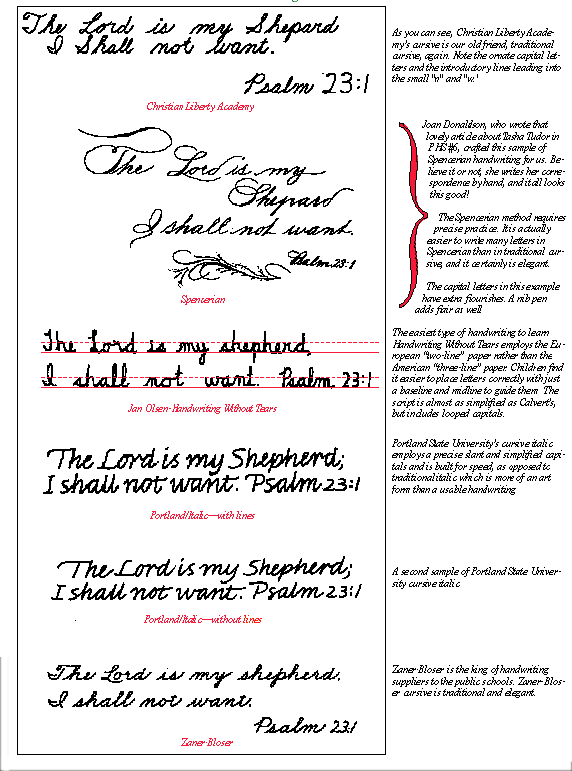 The Lord is my Shepard
I Shall not want.
Psalm 23:1
Christian Liberty Academy
As you can see, Christian Liberty Acade-
my's cursive is our old friend, traditional
cursive, again. Note the ornate capital let-
ters and the introductory lines leading into
the small "n" and "w."
The Lord is my
Shepard
I shall not want.
Psalm 23:1
Spencerian
Joan Donaldson, who wrote that
lovely article about Tasha Tudor in
PHS#6, crafted this sample of
Spencerian handwriting for us. Be-
lieve it or not, she writes her corre-
spondence by hand, and it all looks
this good!
The Spencerian method requires
precise practice. It is actually
easier to write many letters in
Spencerian than in traditional cur-
sive, and it certainly is elegant.
The capital letters in this example
have extra flourishes. A nib pen
adds flair as well
The Lord is my shepherd,
I shall not want. Psalm 23:1
Jan Olsen-Handwriting Without Tears
The easiest type of handwriting to learn
Handwriting Without Tears employs the Eu-
ropean "two-line" paper rather than the
American "three-line" paper. Children find
it easier to place letters correctly with just
a baseline and midline to guide them. The
script is almost as simplified as Calvert's,
but includes looped capitals.
The Lord is my Shepherd;
I shall not want. Psalm 23:1
Portland/Italic—with lines
Portland State University's cursive italic
employs a precise slant and simplified capi-
tals and is built for speed, as opposed to
traditional italic which is more of an art
form than a usable handwriting
The Lord is my Shepherd;
I shall not want. Psalm 23:1
Portland/Italic—without lines
A second sample of Portland State Univer-
sity cursive italic
The Lord is my shepherd.
I shall not want.
Psalm 23:1
Zaner-Bloser
Zaner-Bloser is the king of handwriting
suppliers to the public schools. Zaner-Blos-
er cursive is traditional and elegant.